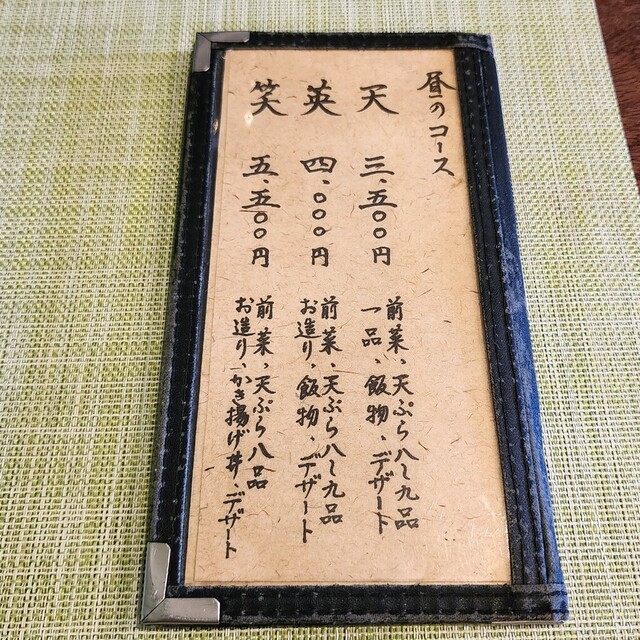 昼のコース
天 三、五〇〇円 前菜、天ぷら八〜九品
一品、飯物、デザート
英 四、〇〇〇円 前菜、天ぷら八〜九品
お造り、飯物、デザート
笑 五、五〇〇円 前菜、天ぷら八品
お造り、かき揚げ丼、デザート